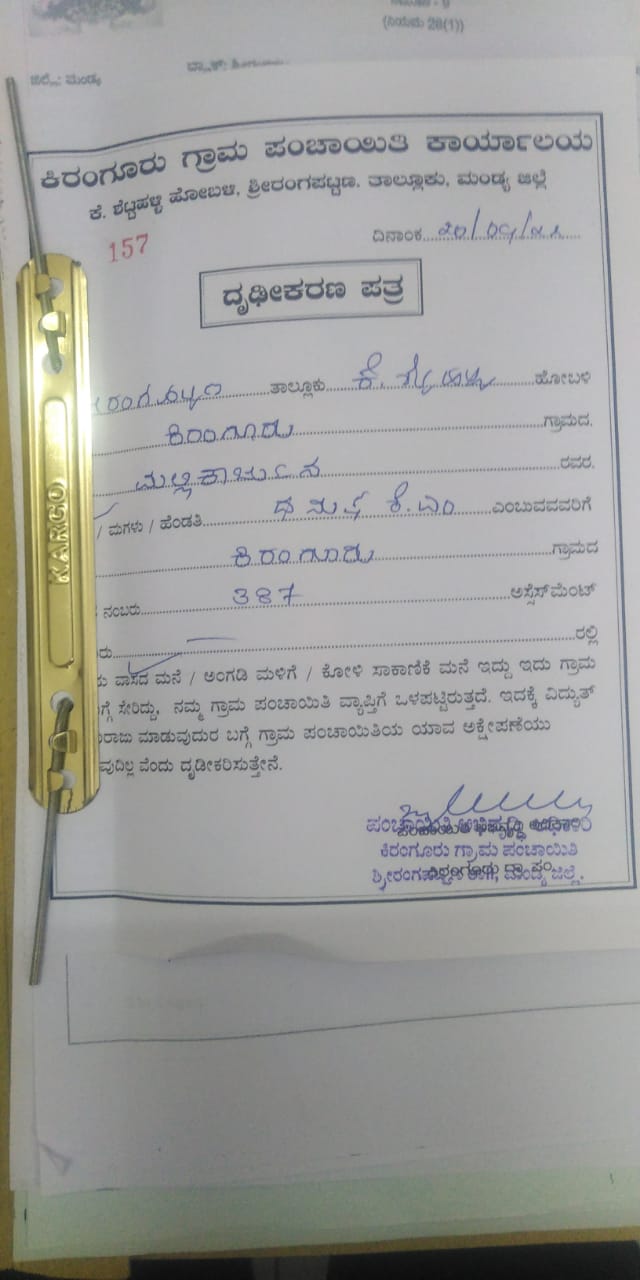 (ನಿಯಮ 28(1))
ಜಿಲ್ಲೆ: ಮಂಡ್ಯ
ಕಿರಂಗೂರು ಗ್ರಾಮ ಪಂಚಾಯಿತಿ ಕಾರ್ಯಾಲಯ
ಕೆ. ಶೆಟ್ಟಹಳ್ಳಿ ಹೋಬಳಿ, ಶ್ರೀರಂಗಪಟ್ಟಣ. ತಾಲ್ಲೂಕು, ಮಂಡ್ಯ ಜಿಲ್ಲೆ
157
ದಿನಾಂಕ
ದೃಢೀಕರಣ ಪತ್ರ
ತಾಲ್ಲೂಕು ಕೆ. ಹೋಬಳಿ
ಕಿರಂಗೂರು ಗ್ರಾಮದ.
ಮಲ್ಲಿಕಾರ್ಜುನ ರವರ.
/ ಮಗಳು / ಹೆಂಡತಿ ಧನುಷ ಕೆ.ಎಂ ಎಂಬುವವರಿಗೆ
ಕಿರಂಗೂರು ಗ್ರಾಮದ
ನಂಬರು 387 ಅಸ್ಸೆಸ್‌ಮೆಂಟ್
ರಲ್ಲಿ
ವಾಸದ ಮನೆ / ಅಂಗಡಿ ಮಳಿಗೆ / ಕೋಳಿ ಸಾಕಾಣಿಕೆ ಮನೆ ಇದ್ದು ಇದು ಗ್ರಾಮ
ಸೇರಿದ್ದು, ನಮ್ಮ ಗ್ರಾಮ ಪಂಚಾಯಿತಿ ವ್ಯಾಪ್ತಿಗೆ ಒಳಪಟ್ಟಿರುತ್ತದೆ. ಇದಕ್ಕೆ ವಿದ್ಯುತ್
ಮಾಡುವುದುರ ಬಗ್ಗೆ ಗ್ರಾಮ ಪಂಚಾಯಿತಿಯ ಯಾವ ಅಕ್ಷೇಪಣೆಯು
ವೆಂದು ದೃಡೀಕರಿಸುತ್ತೇನೆ.
ಕಿರಂಗೂರು ಗ್ರಾಮ ಪಂಚಾಯಿತಿ
KARGO